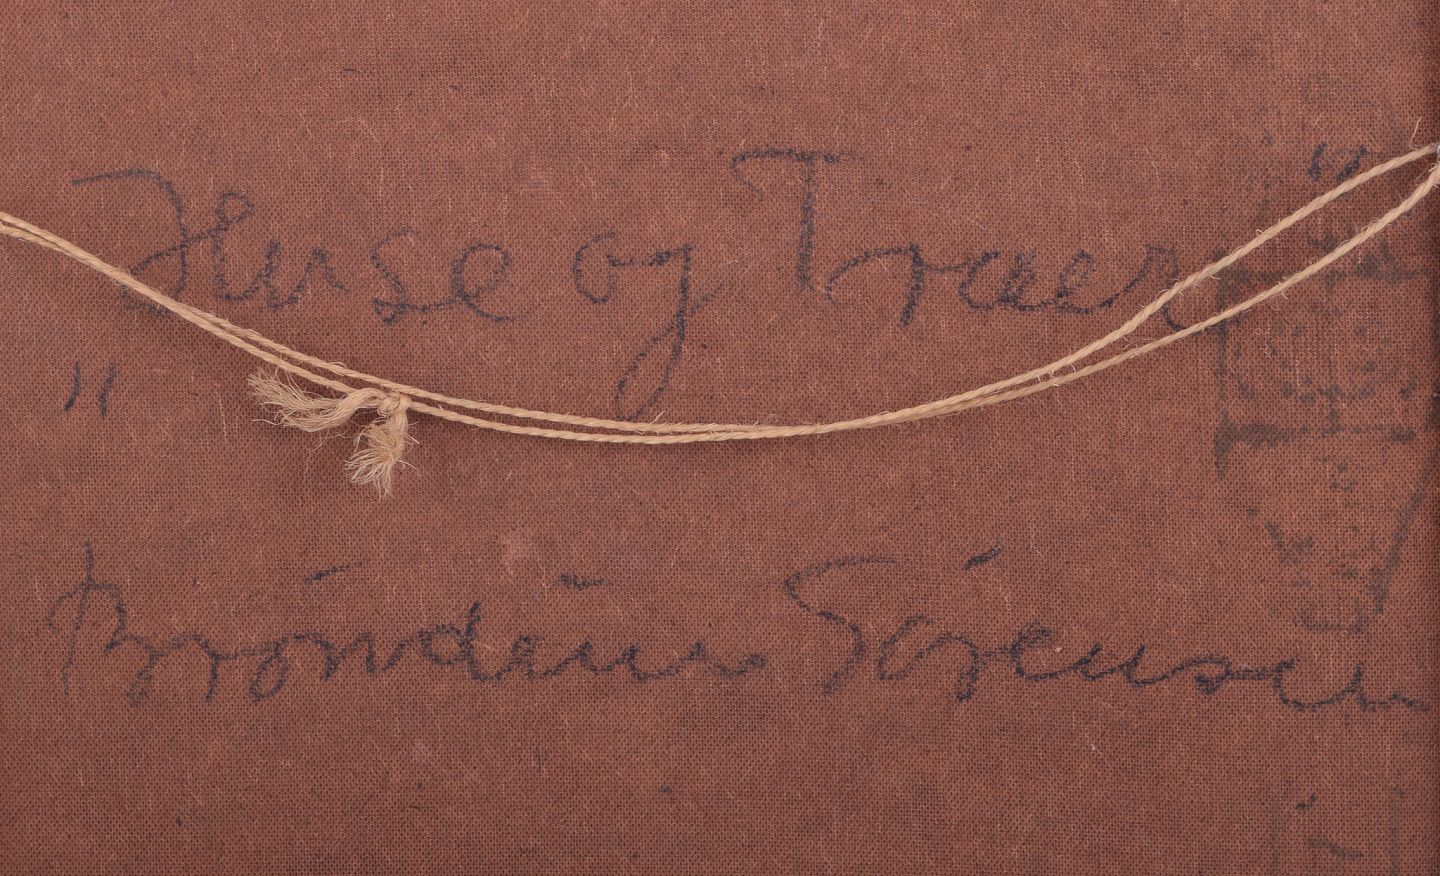 „Huse og Træer"
Bróndum Sórensen